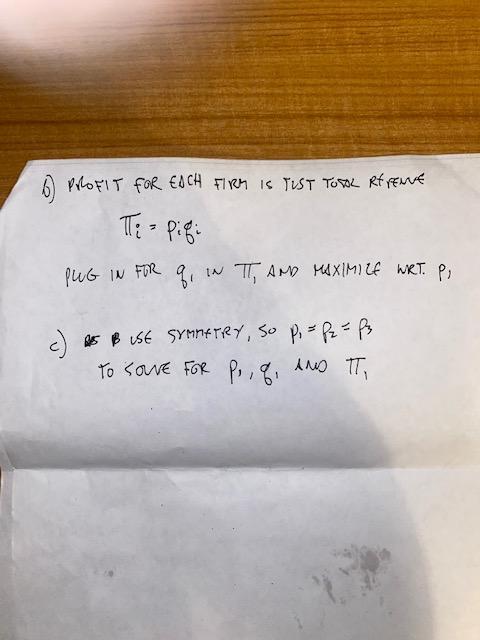 b) PROFIT FOR EACH FIRM IS JUST TOTAL REVENUE
Πi = piqi
PLUG IN FOR q1 IN Π1 AND MAXIMIZE WRT. p1
c) USE SYMMETRY, SO p1 = p2 = p3
TO SOLVE FOR p1, q1 AND Π1